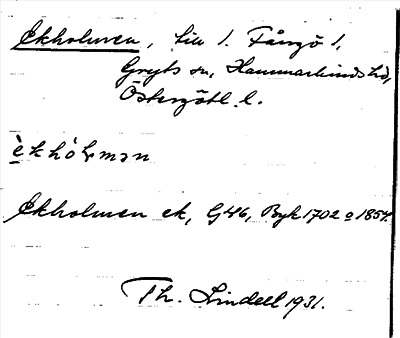 Ekholmen, till 1. Fångö 1,
Gryts sn, Hammarkinds hd,
Östergötl. l.
èkhólmən
Ekholmen ek, G46, Byk 1702 o 1854.
Th. Lindell 1931.